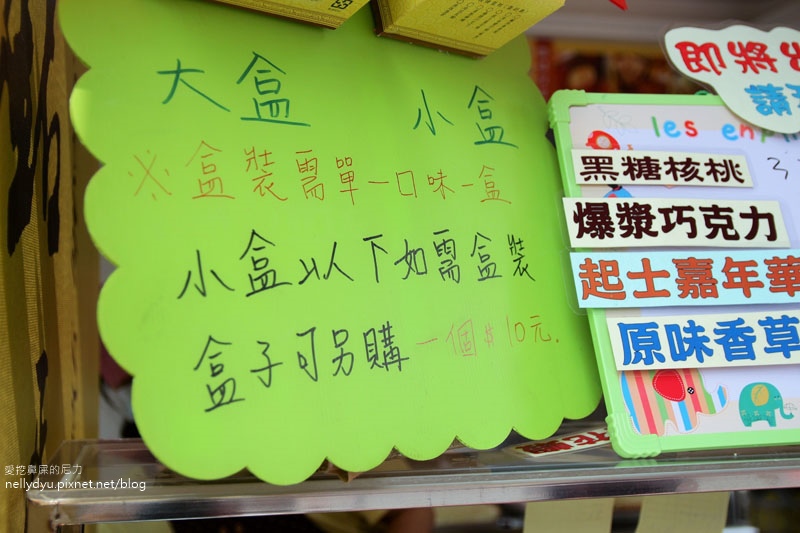 大盒 小盒
※盒裝需單一口味一盒
小盒以下如需盒裝
盒子可另購 一個$10元.
即將
請
les en
黑糖核桃 3
爆漿巧克力
起士嘉年華
原味香草
愛挖鼻屎的厄力
nellydyu.pixnet.net/blog